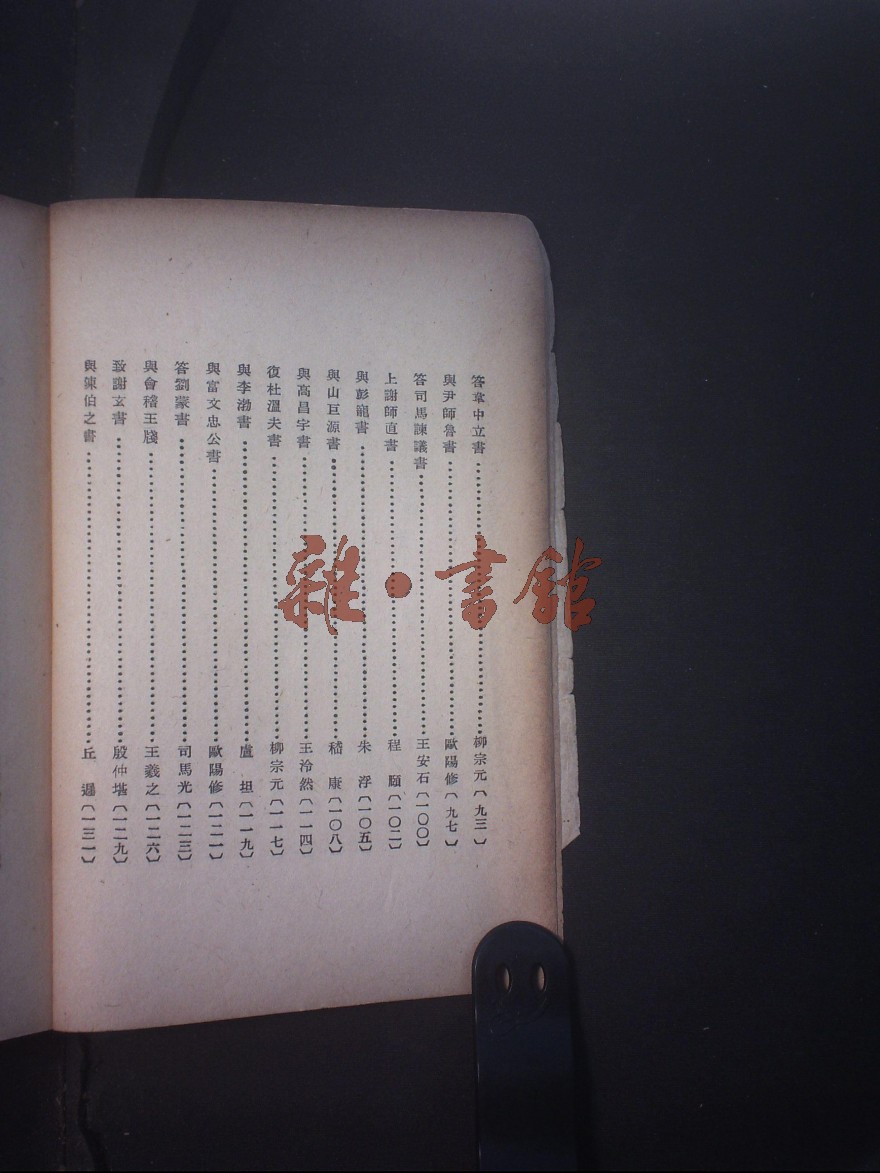 答韋中立書……柳宗元〔九三〕
與尹師魯書……歐陽修〔九七〕
答司馬諫議書……王安石〔一〇〇〕
上謝師直書……程頤〔一〇二〕
與彭寵書……朱浮〔一〇五〕
與山巨源書……嵇康〔一〇八〕
與高昌宇書……王泠然〔一一四〕
復杜溫夫書……柳宗元〔一一七〕
與李渤書……盧坦〔一一九〕
與富文忠公書……歐陽修〔一二一〕
答劉蒙書……司馬光〔一二三〕
與會稽王牋……王羲之〔一二六〕
致謝玄書……殷仲堪〔一二九〕
與陳伯之書……丘遲〔一三一〕
雜·書館